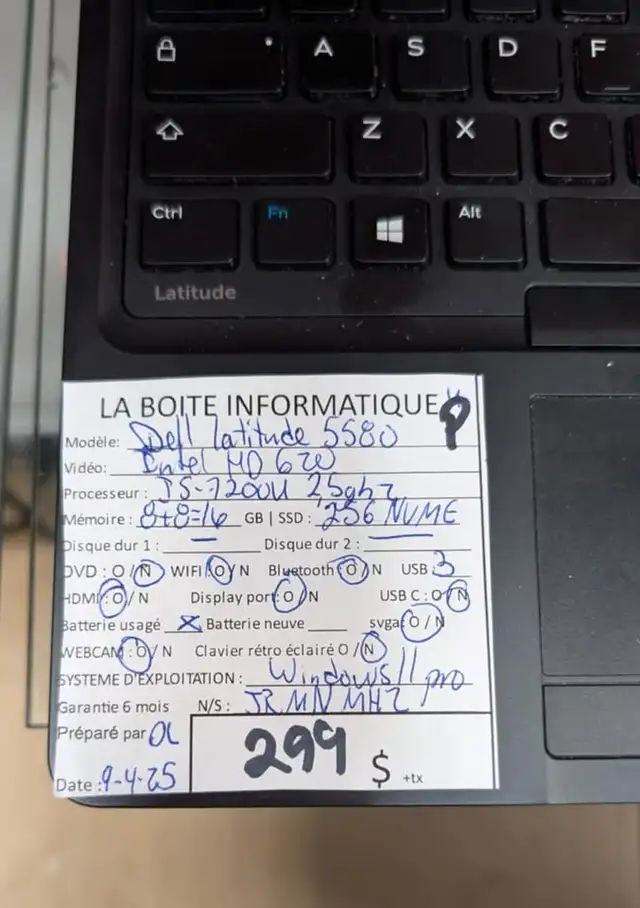 A S D F
Z X C
Ctrl Fn Alt
Latitude
LA BOITE INFORMATIQUE
Modèle: Dell latitude 5580
Vidéo: Intel HD 620
Processeur : I5-7200U 2,5ghz
Mémoire : 8+8=16 GB | SSD : 256 NVME
Disque dur 1 : Disque dur 2 :
DVD : O / N WIFI : O / N Bluetooth : O / N USB 3
HDMI : O / N Display port : O / N USB C : O / N
Batterie usagé X Batterie neuve svga: O / N
WEBCAM : O / N Clavier rétro éclairé O / N
SYSTEME D'EXPLOITATION : Windows 11 pro
Garantie 6 mois N/S : JRMNMH2
Préparé par OL
299 $ +tx
Date : 9-4-25